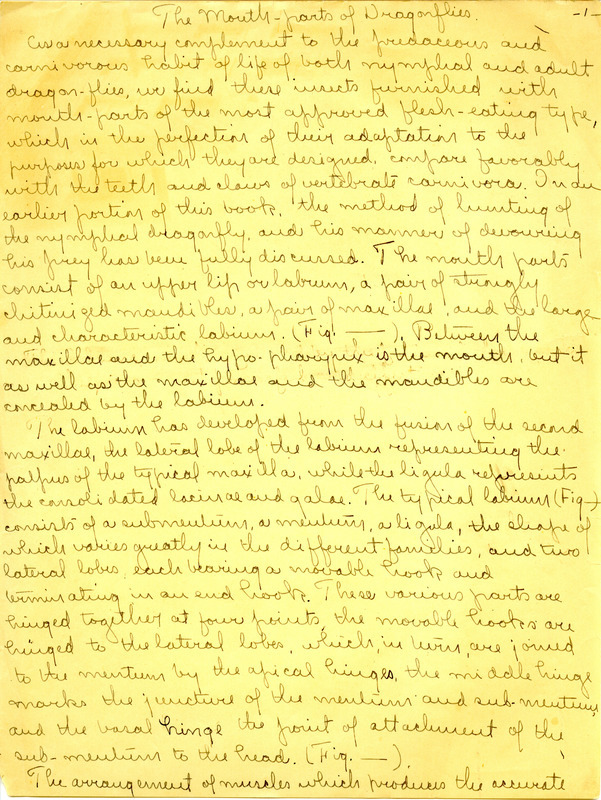 The Mouth-parts of Dragonflies. -1-
As a necessary complement to the predaceous and
carnivorous habit of life of both nymphal and adult
dragon-flies, we find these insects furnished with
mouth-parts of the most approved flesh-eating type,
which in the perfection of their adaptation to the
purposes for which they are designed, compare favorably
with the teeth and claws of vertebrate carnivora. In an
earlier portion of this book, the method of hunting of
the nymphal dragonfly, and his manner of devouring
his prey has been fully discussed. The mouth parts
consist of an upper lip or labrum, a pair of strongly
chitinized mandibles, a pair of maxillae, and the large
and characteristic labium. (Fig. —). Between the
maxillae and the hypo-pharynx is the mouth, but it
as well as the maxillae and the mandibles are
concealed by the labium.
The labium has developed from the fusion of the second
maxillae, the lateral lobe of the labium representing the
palpus of the typical maxilla, while the ligula represents
the consolidated laciniae and galae. The typical labium (Fig-)
consists of a submentum, a mentum, a ligula, the shape of
which varies greatly in the different families, and two
lateral lobes each bearing a movable hook and
terminating in an end hook. These various parts are
hinged together at four points, the movable hooks are
hinged to the lateral lobes, which, in turn, are joined
to the mentum by the apical hinges, the middle hinge
marks the juncture of the mentum and sub-mentum,
and the basal hinge the point of attachment of the
sub-mentum to the head. (Fig. —).
The arrangement of muscles which produces the accurate